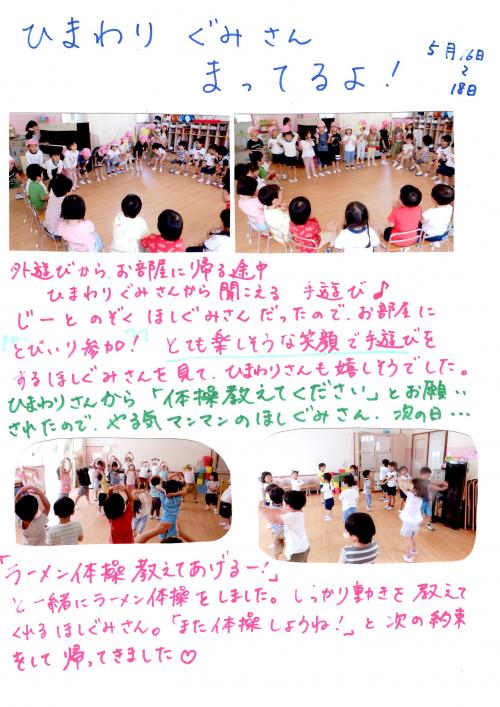 ひまわり ぐみさん
まってるよ！
5月16日
〜
18日
外遊びから、お部屋に帰る途中
ひまわりぐみさんから聞こえる 手遊び♪
じーと のぞく ほしぐみさんだったので、お部屋に
とびいり参加！ とても楽しそうな笑顔で手遊びを
するほしぐみさんを見て、ひまわりさんも嬉しそうでした。
ひまわりさんから「体操教えてください」とお願い
されたので、やる気マンマンのほしぐみさん。次の日…
「ラーメン体操教えてあげるー！」
と一緒にラーメン体操をしました。しっかり動きを教えて
くれるほしぐみさん。「また体操しようね！」と次の約束
をして帰ってきました♡